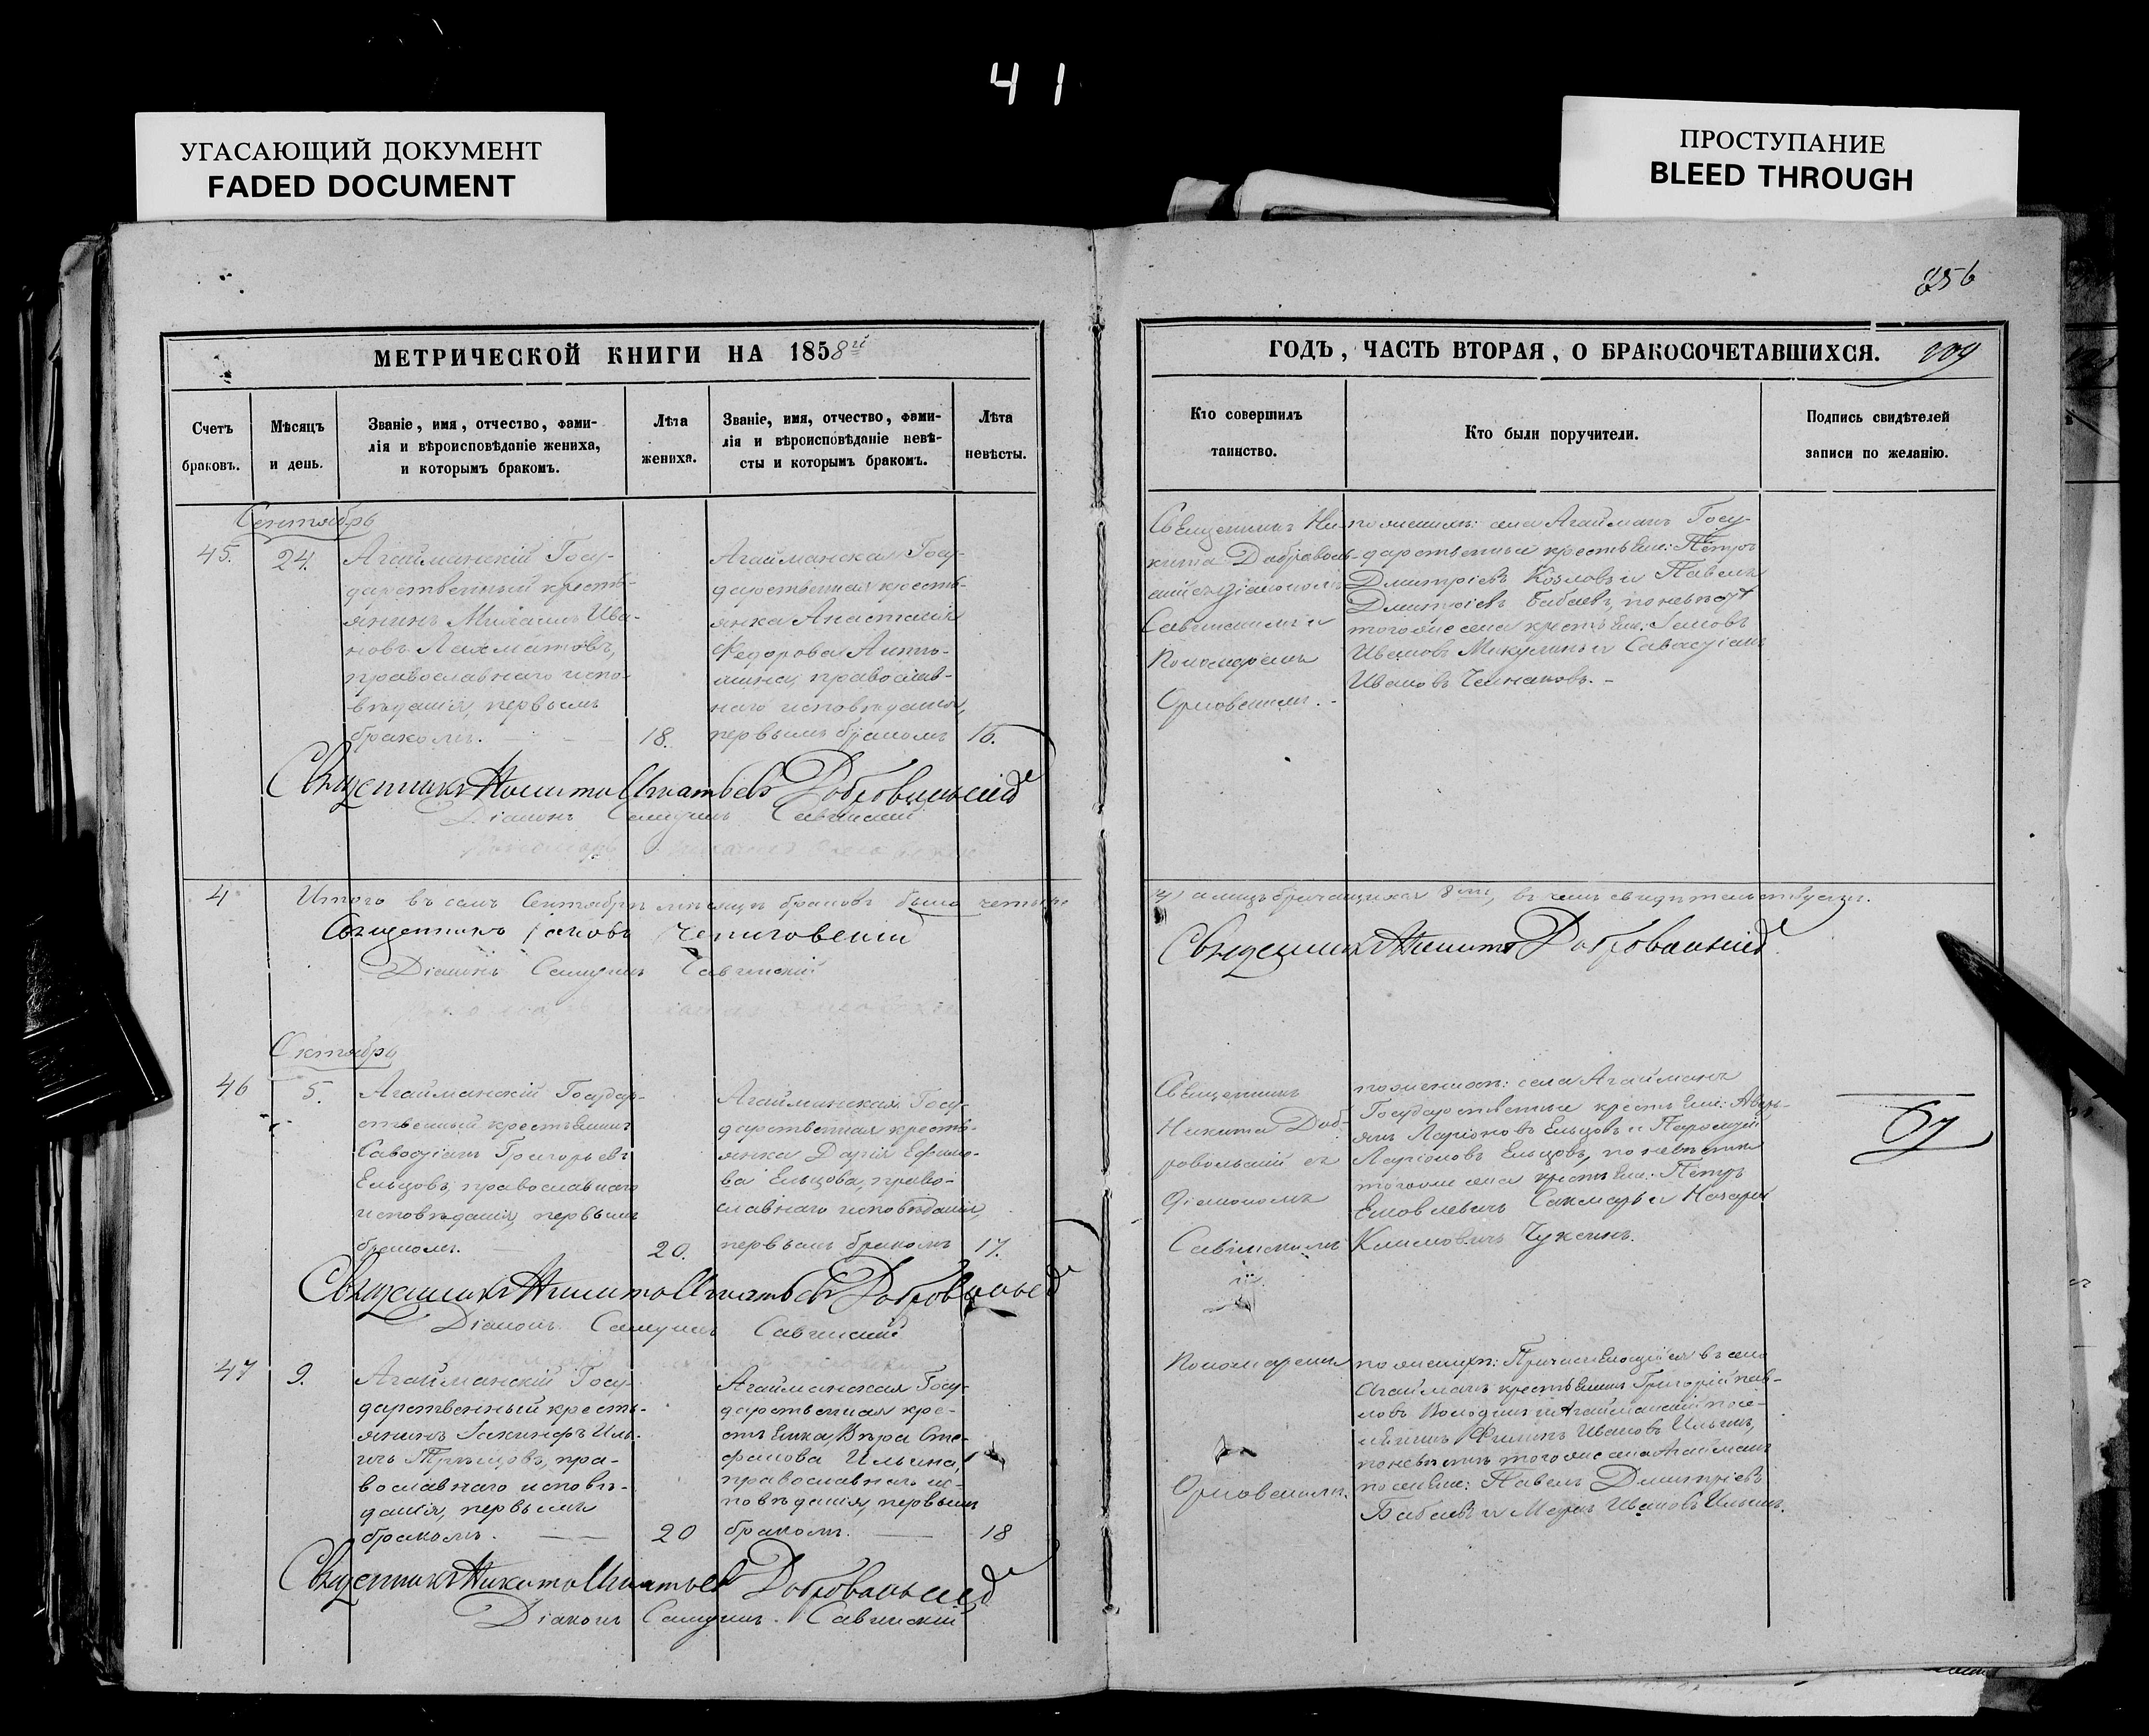 41
УГАСАЮЩИЙ ДОКУМЕНТ
FADED DOCUMENT
ПРОСТУПАНИЕ
BLEED THROUGH
856
МЕТРИЧЕСКОЙ КНИГИ НА 1858й
ГОДЪ, ЧАСТЬ ВТОРАЯ, О БРАКОСОЧЕТАВШИХСЯ.
Счетъ
браковъ.
Мѣсяцъ
и день.
Званіе, имя, отчество, фами-
лія и вѣроисповѣданіе жениха,
и которымъ бракомъ.
Лѣта
жениха.
Званіе, имя, отчество, фами-
лія и вѣроисповѣданіе невѣ-
сты и которымъ бракомъ.
Лѣта
невѣсты.
Кто совершилъ
таинство.
Кто были поручители.
Подпись свидѣтелей
записи по желанію.
Сентябрь
45.
24.
Агайманскій Госу-
дарственный кресть-
янинъ Михаилъ Ива-
новъ Лахматовъ,
православнаго испо-
вѣданія, первымъ
бракомъ.
18.
Агайманская Госу-
дарственная кресть-
янка Анастасія
Федорова
православ-
наго исповѣданія,
первымъ бракомъ
16.
Священникъ Ни-
кита Доброволь-
скій съ діакономъ
Савинскимъ и
Пономаремъ
Орловскимъ.
по женихѣ: села Агайманъ Госу-
дарственные крестьяне: Петръ
Дмитріевъ Козловъ и Павелъ
Дмитріевъ Бабаевъ, по невѣстѣ
тогоже села крестьяне:
Ивановъ Микулинъ и Савастіанъ
Ивановъ
Священникъ Никита Игнатьевъ Добровольскій
Діаконъ Самуилъ Савинскій
4
Итого въ семъ Сентябрѣ мѣсяцѣ браковъ было четыре
а лицъ брачащихся 8мь, въ чемъ свидѣтельствуемъ.
Священникъ Іаковъ Черниговскій
Священникъ Никита Добровольскій
Діаконъ Самуилъ Савинскій
Октябрь
46
5.
Агайманскій Государ-
ственный крестьянинъ
Савостіанъ Григорьевъ
Ельцовъ, православнаго
исповѣданія, первымъ
бракомъ.
20.
Агайманская Госу-
дарственная кресть-
янка Дарія Ефимо-
ва Ельцова, право-
славнаго исповѣданія,
первымъ бракомъ
17.
Священникъ
Никита Доб-
ровольскій съ
діакономъ
Савинскимъ
по женихѣ: села Агайманъ
Государственные крестьяне: Аверь-
янъ Ларіоновъ Ельцовъ и
Ларіоновъ Ельцовъ, по невѣстѣ
тогоже села крестьяне: Петръ
Яковлевичъ и Назарій
Климовичъ
67
Священникъ Никита Игнатьевъ Добровольскій
Діаконъ Самуилъ Савинскій
47
9.
Агайманскій Госу-
дарственный кресть-
янинъ Іакинфъ Иль-
инъ православнаго исповѣ-
данія, первымъ
бракомъ.
20
Агайманская Госу-
дарственная кре-
стьянка Вѣра Сте-
фанова Ильина,
православнаго ис-
повѣданія, первымъ
бракомъ.
18
Пономаремъ
Орловскимъ.
по женихѣ: въ село
Агайманъ крестьянинъ Григорій Пав-
ловъ Володинъ и Агайманскій посе-
лянинъ Филипъ Ивановъ Ильинъ,
по невѣстѣ тогоже села Агайманъ
поселяне: Павелъ Дмитріевъ
Бабаевъ и Ивановъ Ильинъ.
Священникъ Никита Игнатьевъ Добровольскій
Діаконъ Самуилъ Савинскій